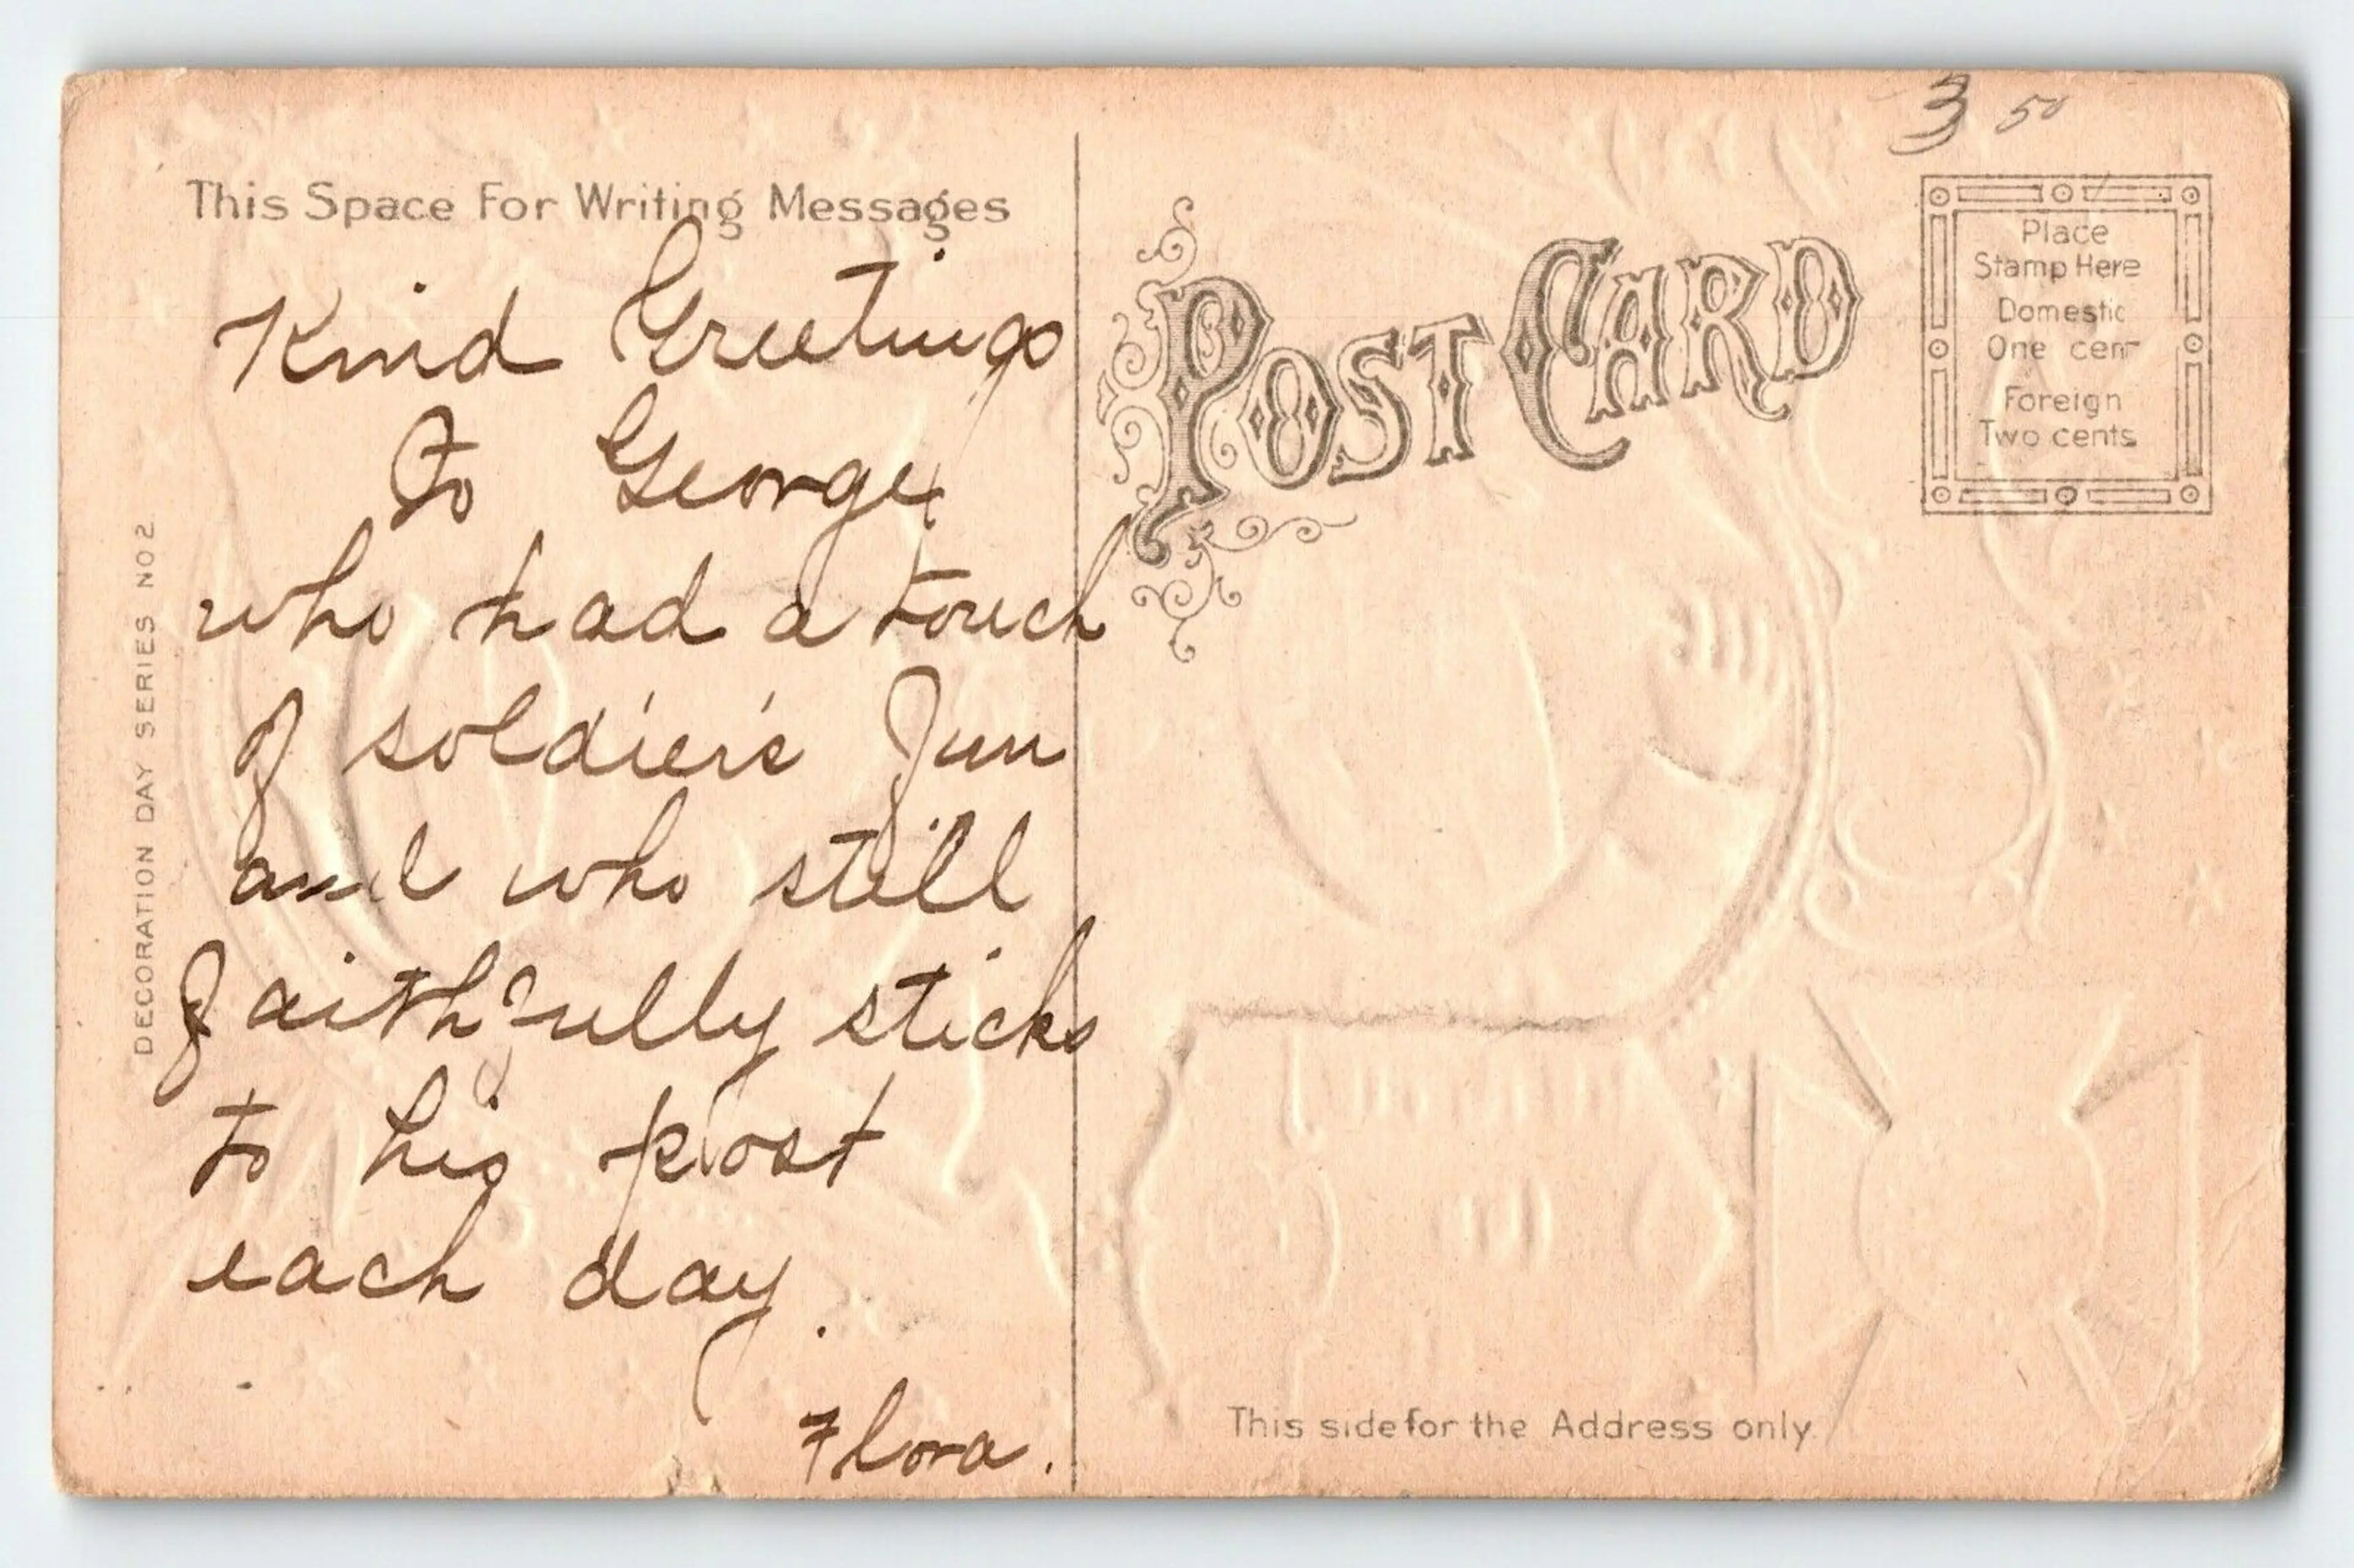 3 50
This Space For Writing Messages
Kind Greetings
To George
who had a touch
of soldier's fun
and who still
faithfully sticks
to his post
each day.
Flora.
DECORATION DAY SERIES NO 2
POST CARD
Place
Stamp Here
Domestic
One cent
Foreign
Two cents
This side for the Address only.